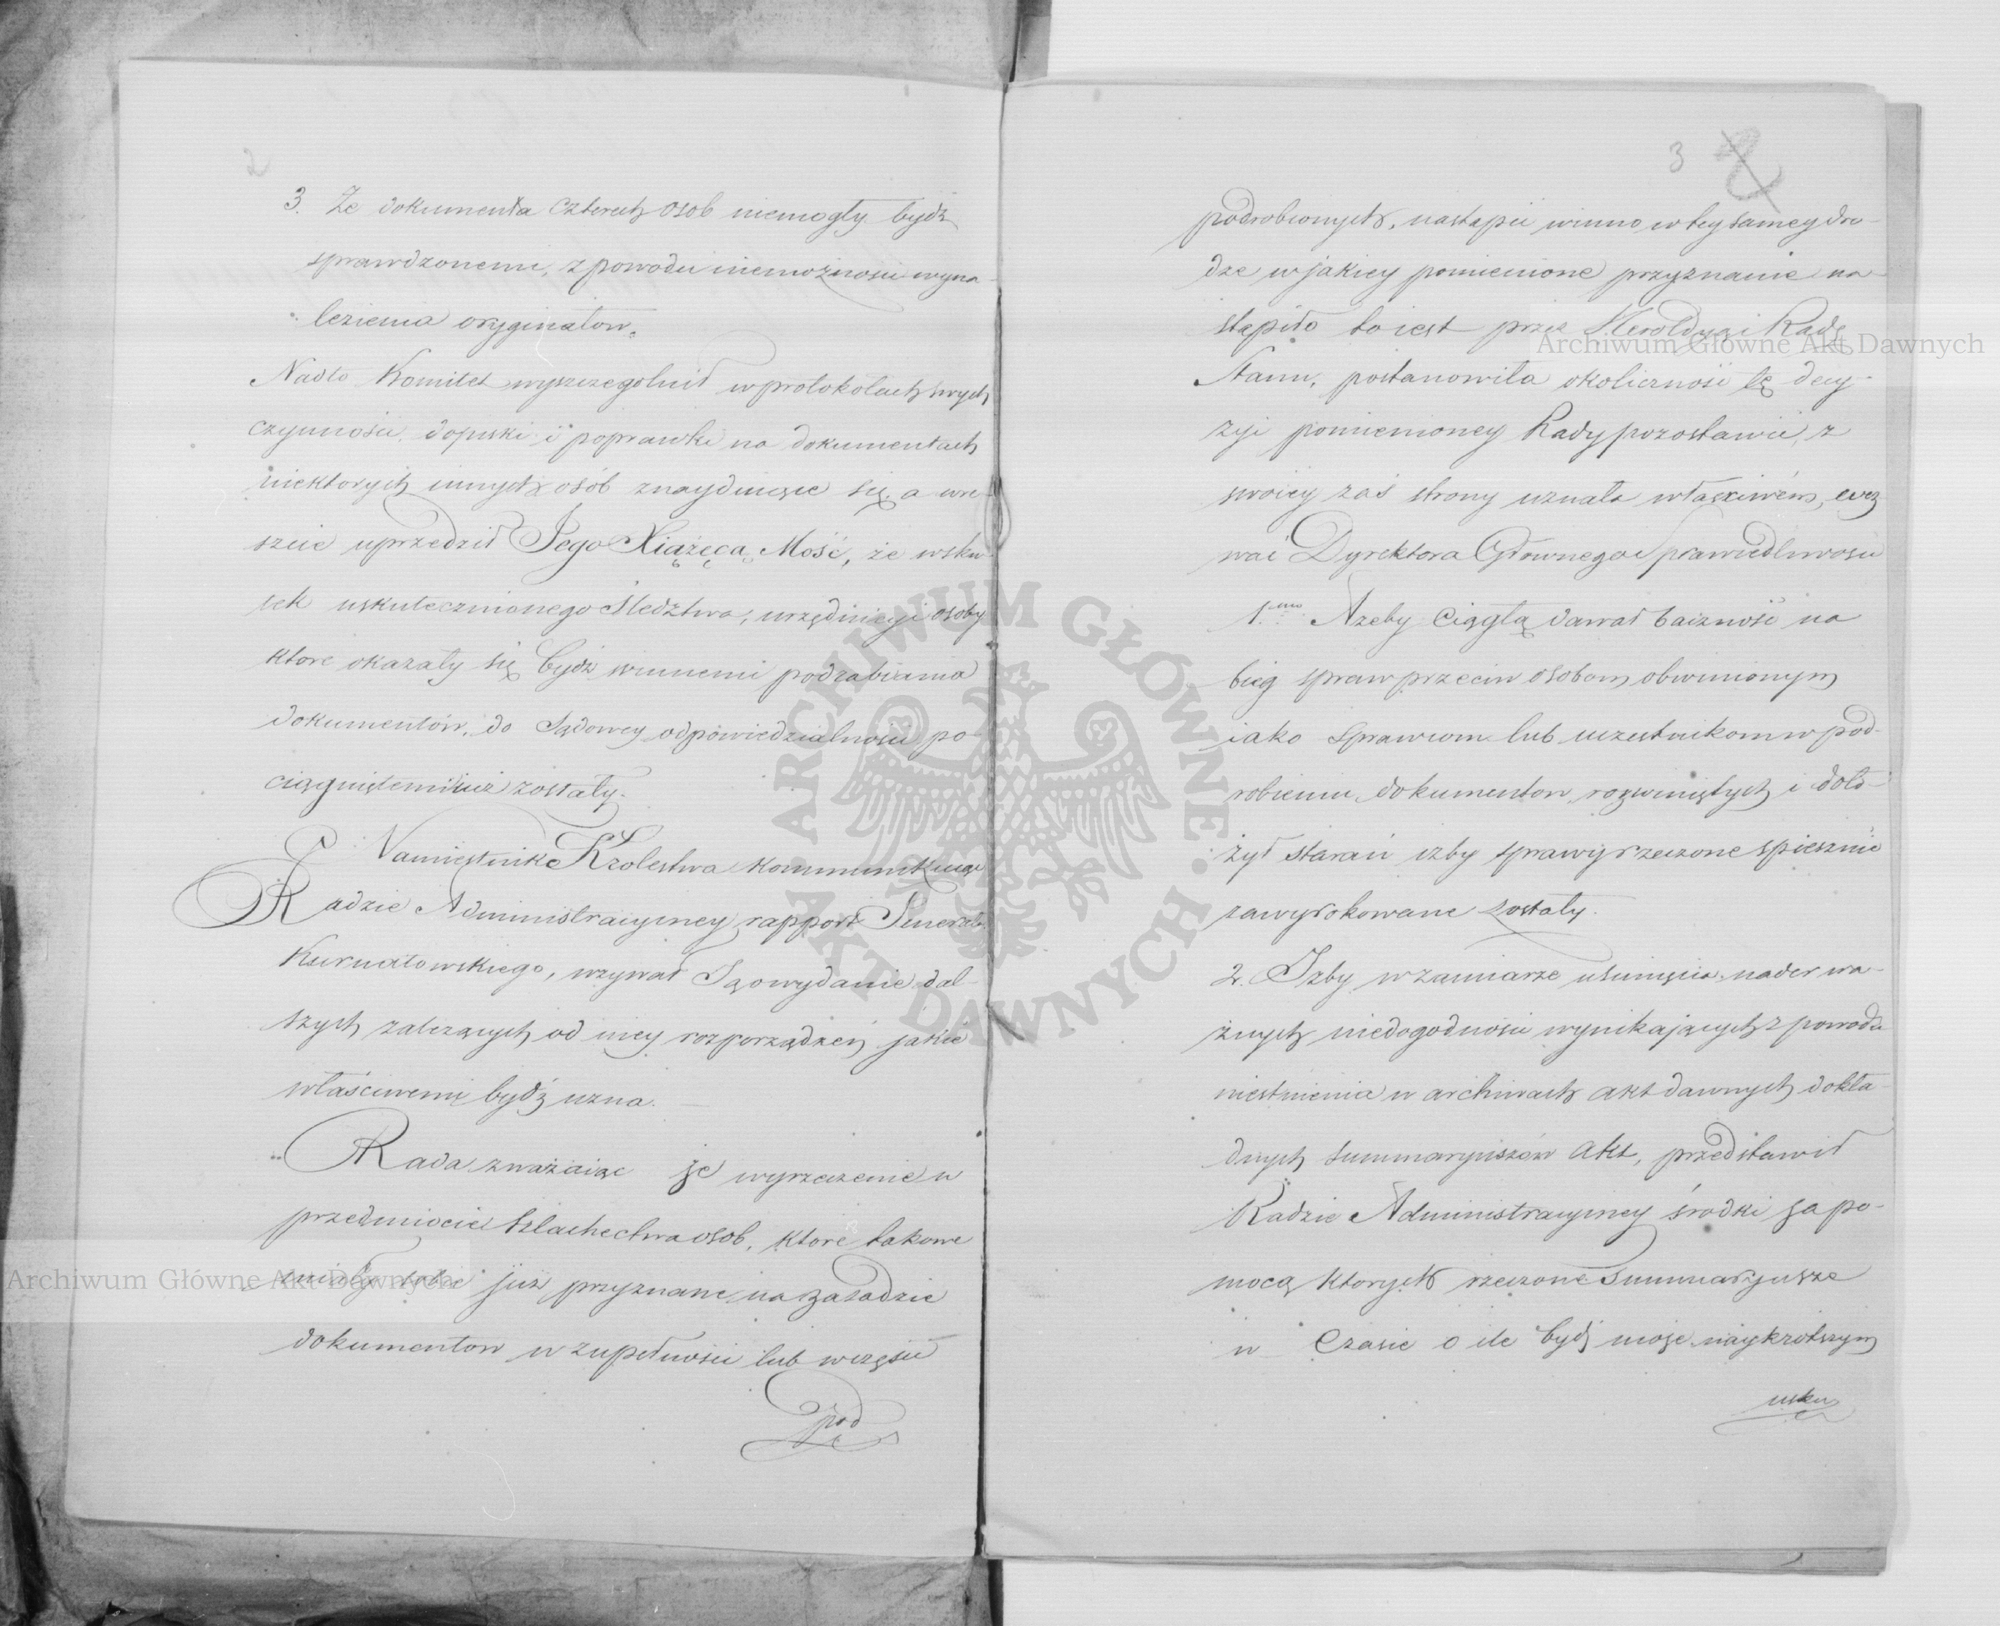 2
3. Że dokumenta czterech osob niemogły bydź
sprawdzonemi, z powodu niemożności wyna-
lezienia oryginałow.
Nadto Komitet wyszczegolnił w protokołach swych
czynności, dopiski i poprawki na dokumentach
niektorych innych osób znayduiące się, a wre-
szcie uprzedził Jego Xiążęcą Mość, że wsku-
tek uskutecznionego śledztwa, urzędnicy i osoby
ktore okazały się bydź winnemi podrabiania
dokumentów, do sądowey odpowiedzialności po-
ciągniętemi iuż zostały.
Namiestnik Krolestwa kommunikuiąc
Radzie Administracyiney rapport Jenerała
Kurnatowskiego, wzywał Ią o wydanie dal-
szych zależących od niey rozporządzeń jakie
właściwemi bydź uzna.
Rada zważaiąc że wyrzeczenie w
przedmiocie szlachectwa osob, ktore takowe
miały sobie już przyznane na zasadzie
dokumentow w zupełności lub w części
pod
3
podrobionych, nastąpić winno w tey samey dro-
dze w jakiey pomienione przyznanie na-
stąpiło to iest przez Heroldyą i Radę
Stanu, postanowiła okoliczność tę decy-
zyi pomienioney Rady pozostawić, z
swoiey zaś strony uznała właściwém, wez
wać Dyrektora Głownego Sprawiedliwości
1.mo Ażeby ciągłą dawał baczność na
bieg spraw przeciw osobom obwinionym
iako sprawcom lub uczestnikom w pod-
robieniu dokumentow, rozwiniętych i doło-
żył starań iżby sprawy rzeczone spiesznie
zawyrokowane zostały.
2. Iżby w zamiarze usunięcia nader wa-
żnych niedogodności wynikających z powodu
nieistnienia w archiwach akt dawnych dokła-
dnych summaryuszów akt, przedstawił
Radzie Administracyiney środki za po-
mocą ktorych rzeczone summaryusze
w czasie o ile bydź może naykrótszym
usku
Archiwum Główne Akt Dawnych
Archiwum Główne Akt Dawnych
ARCHIWUM GŁÓWNE AKT DAWNYCH